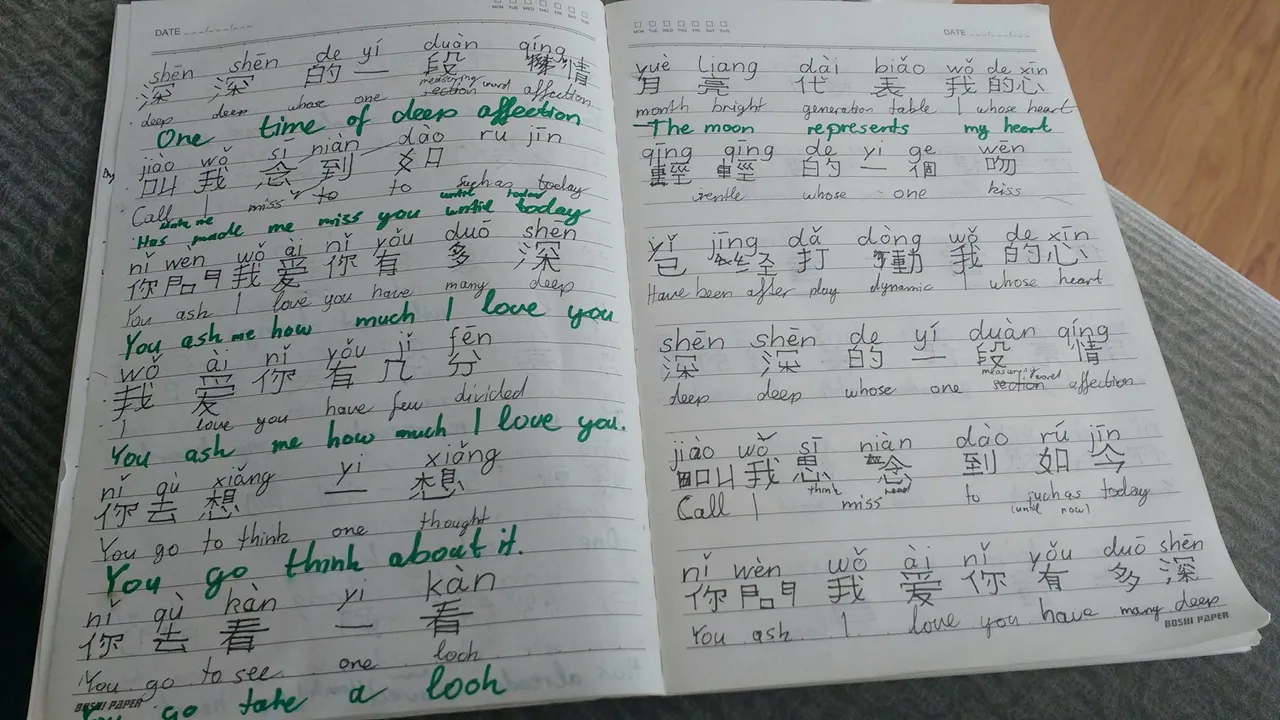 DATE
MON TUE WED THU FRI SAT SUN
shēn shēn de yí duàn qíng
深 深 的 一 段 情
measuring word
deep deep whose one section affection
One time of deep affection
jiào wǒ sī niàn dào ru jīn
叫 我 念 到 如
Call I miss to to such as today
make me until today
Has made me miss you until today
nǐ wen wǒ ài nǐ yǒu duō shēn
你 問 我 爱 你 有 多 深
You ask I love you have many deep
You ask me how much I love you
wǒ ài nǐ yǒu jǐ fēn
我 爱 你 有 几 分
I love you have few divided
You ask me how much I love you.
nǐ qù xiǎng yi xiǎng
你 去 想 一 想
You go to think one thought
You go think about it.
nǐ qù kàn yi kàn
你 去 看 一 看
You go to see one look
You go take a look
BOSHI PAPER
MON TUE WED THU FRI SAT SUN
DATE
yuè liang dài biǎo wǒ de xīn
有 亮 代 表 我 的心
month bright generation table I whose heart
The moon represents my heart
qīng qīng de yi ge wěn
輕 輕 的 一 個 吻
gentle whose one kiss
yǐ jīng dǎ dòng wǒ de xīn
已 经 打 動 我 的心
Have been after play dynamic I whose heart
shēn shēn de yí duàn qíng
深 深 的 一 段 情
measuring word
deep deep whose one section affection
jiào wǒ sī niàn dào rú jīn
叫 我 思 念 到 如 今
think read
Call I miss to such as today
(until now)
nǐ wèn wǒ ài nǐ yǒu duō shēn
你 問 我 爱 你 有 多 深
You ask I love you have many deep
BOSHI PAPER